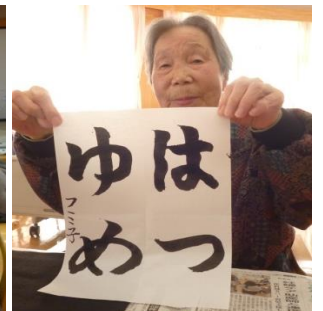 はつ
ゆめ
フミ子